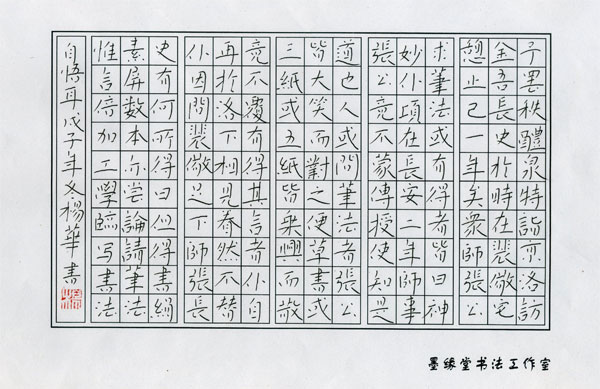 予罢秩醴泉特詣京洛訪
金吾長史於時在裴儆宅
憩止已一年矣衆師張公
求筆法或有得者皆曰神
妙仆頃在長安二年師事
張公竟不蒙傳授使知是
道也人或問筆法者張公
皆大笑而對之便草書或
三紙或五紙皆乘興而散
竟不覆有得其言者仆自
再於洛下相見眷然不替
仆因問裴儆足下師張長
史有何所得曰但得書絹
素屏數本亦嘗論請筆法
惟言倍加工學臨写書法
自悟耳戊子年冬楊華書
墨缘堂书法工作室